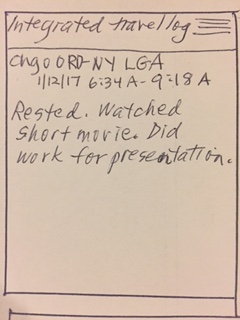 Integrated travel log
Chgo ORD-NY LGA
1/12/17 6:34A-9:18A
Rested. Watched
short movie. Did
work for presentation.